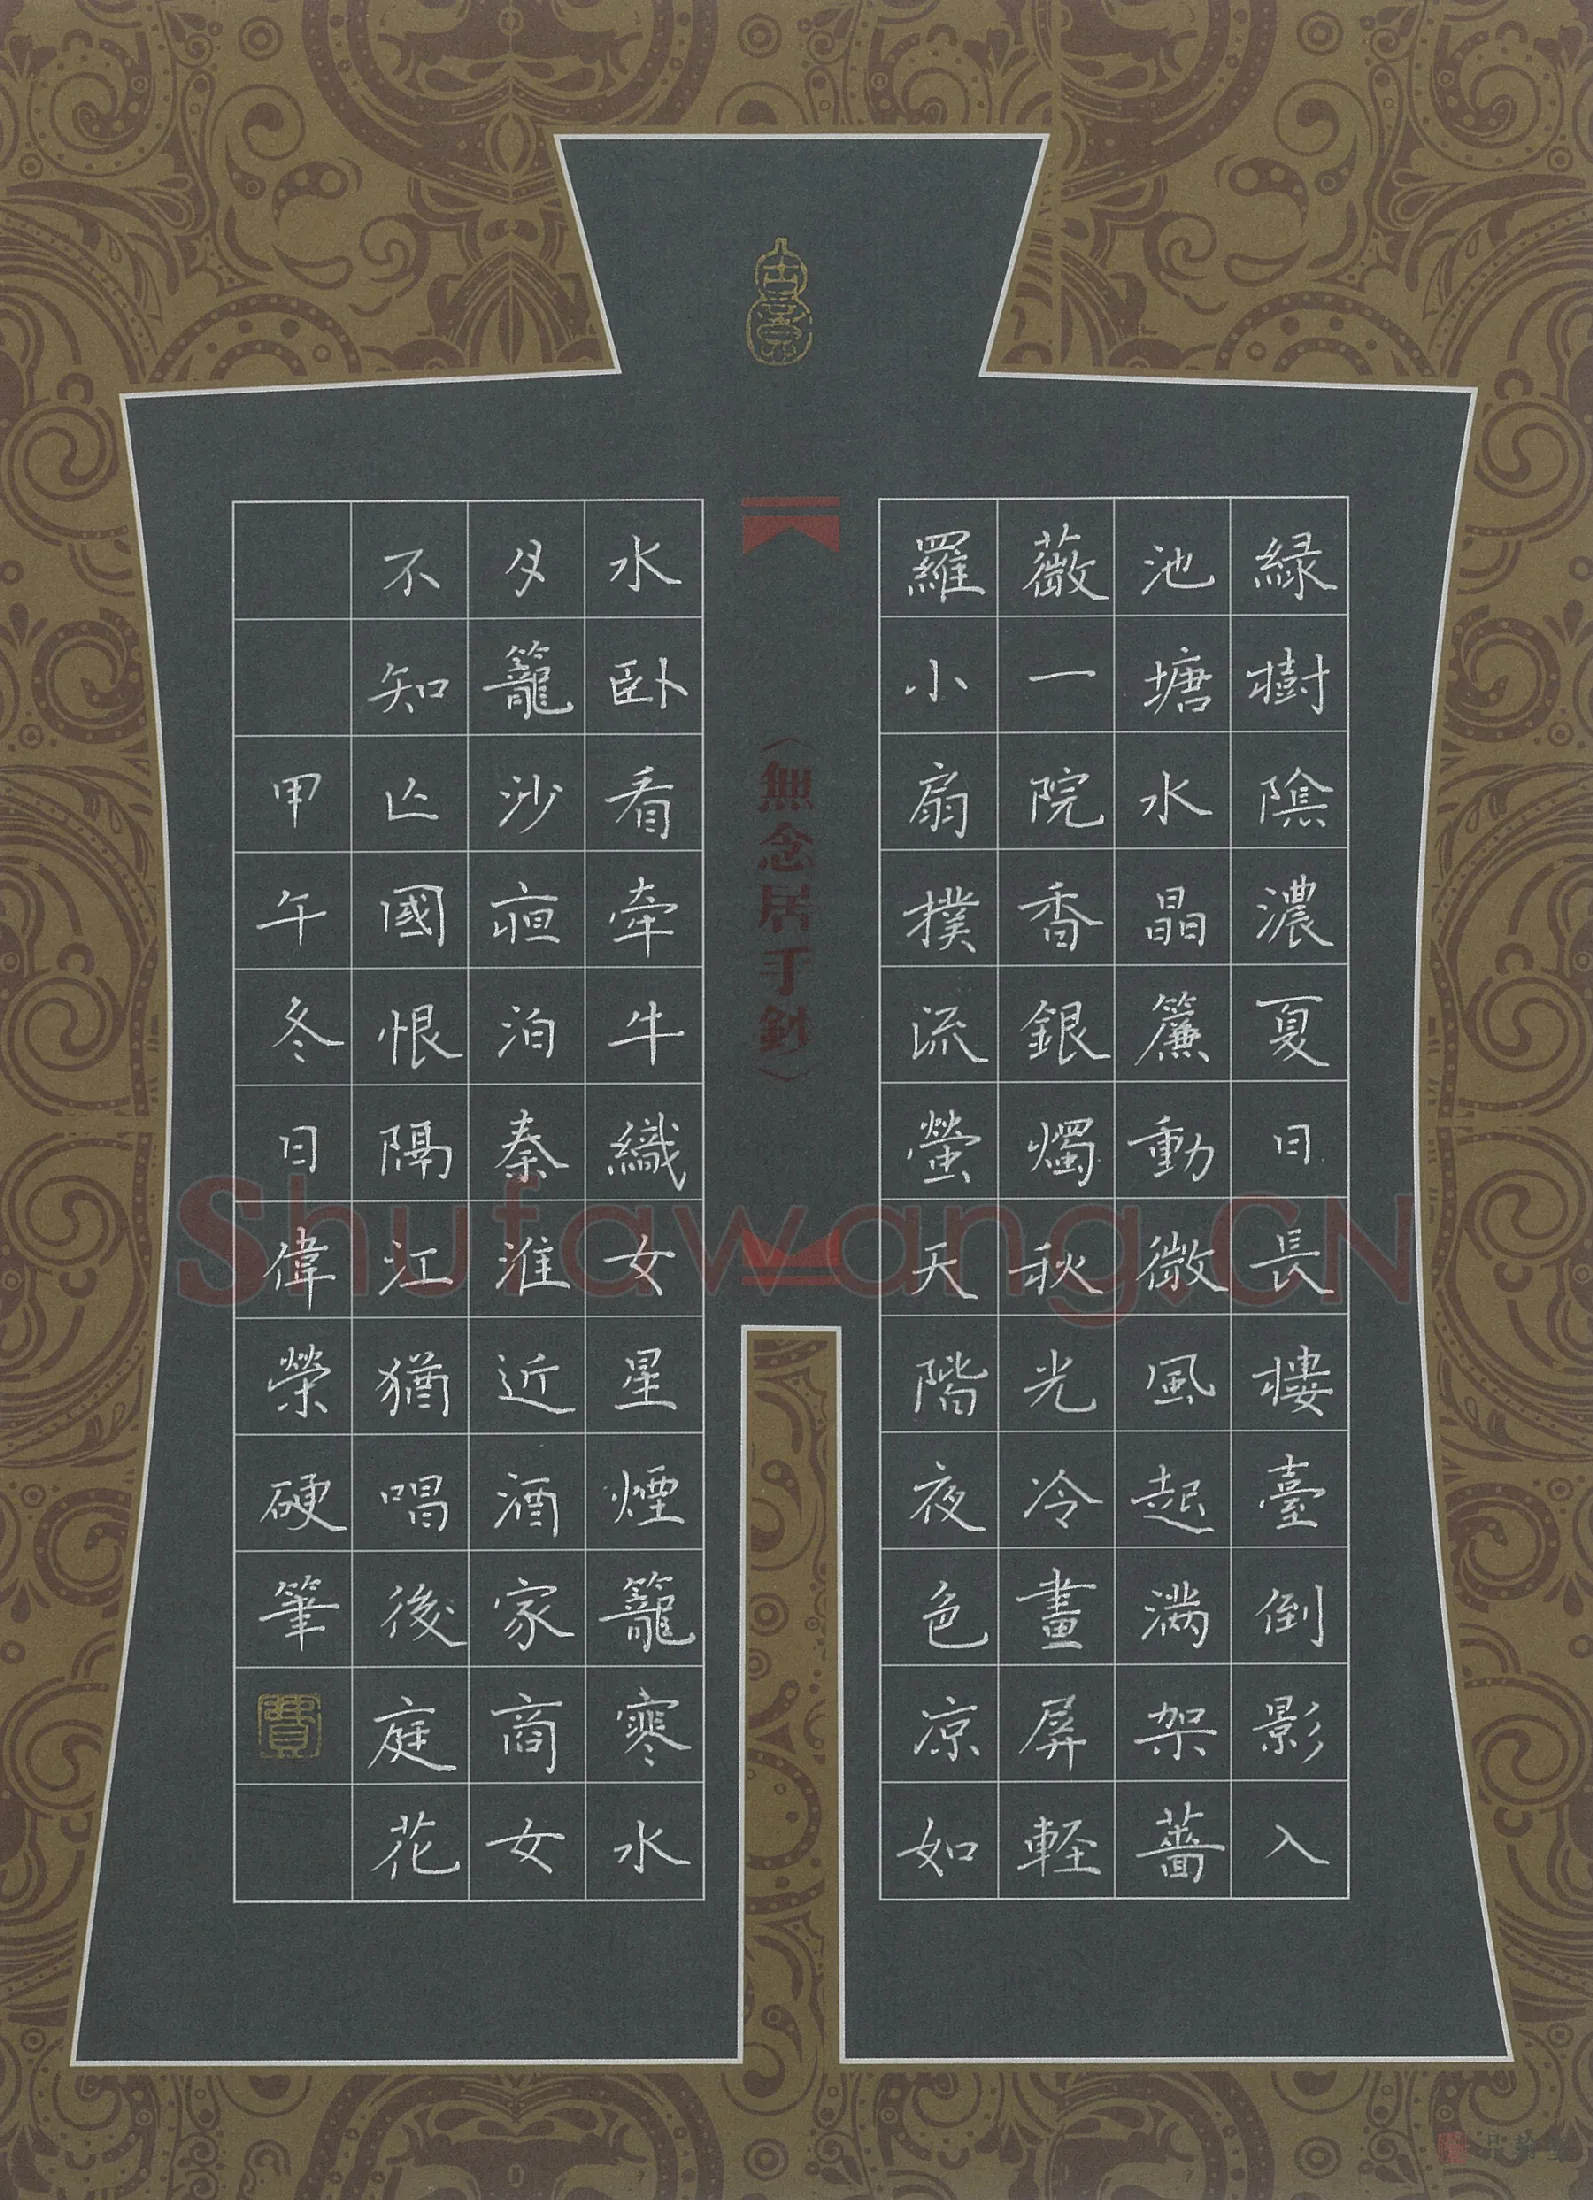 綠樹陰濃夏日長樓臺倒影入
池塘水晶簾動微風起滿架薔
薇一院香銀燭秋光冷畫屏輕
羅小扇撲流螢天階夜色涼如
(無念居手鈔)
水臥看牽牛織女星煙籠寒水
月籠沙夜泊秦淮近酒家商女
不知亡國恨隔江猶唱後庭花
甲午冬日偉榮硬筆
Shufawang.CN